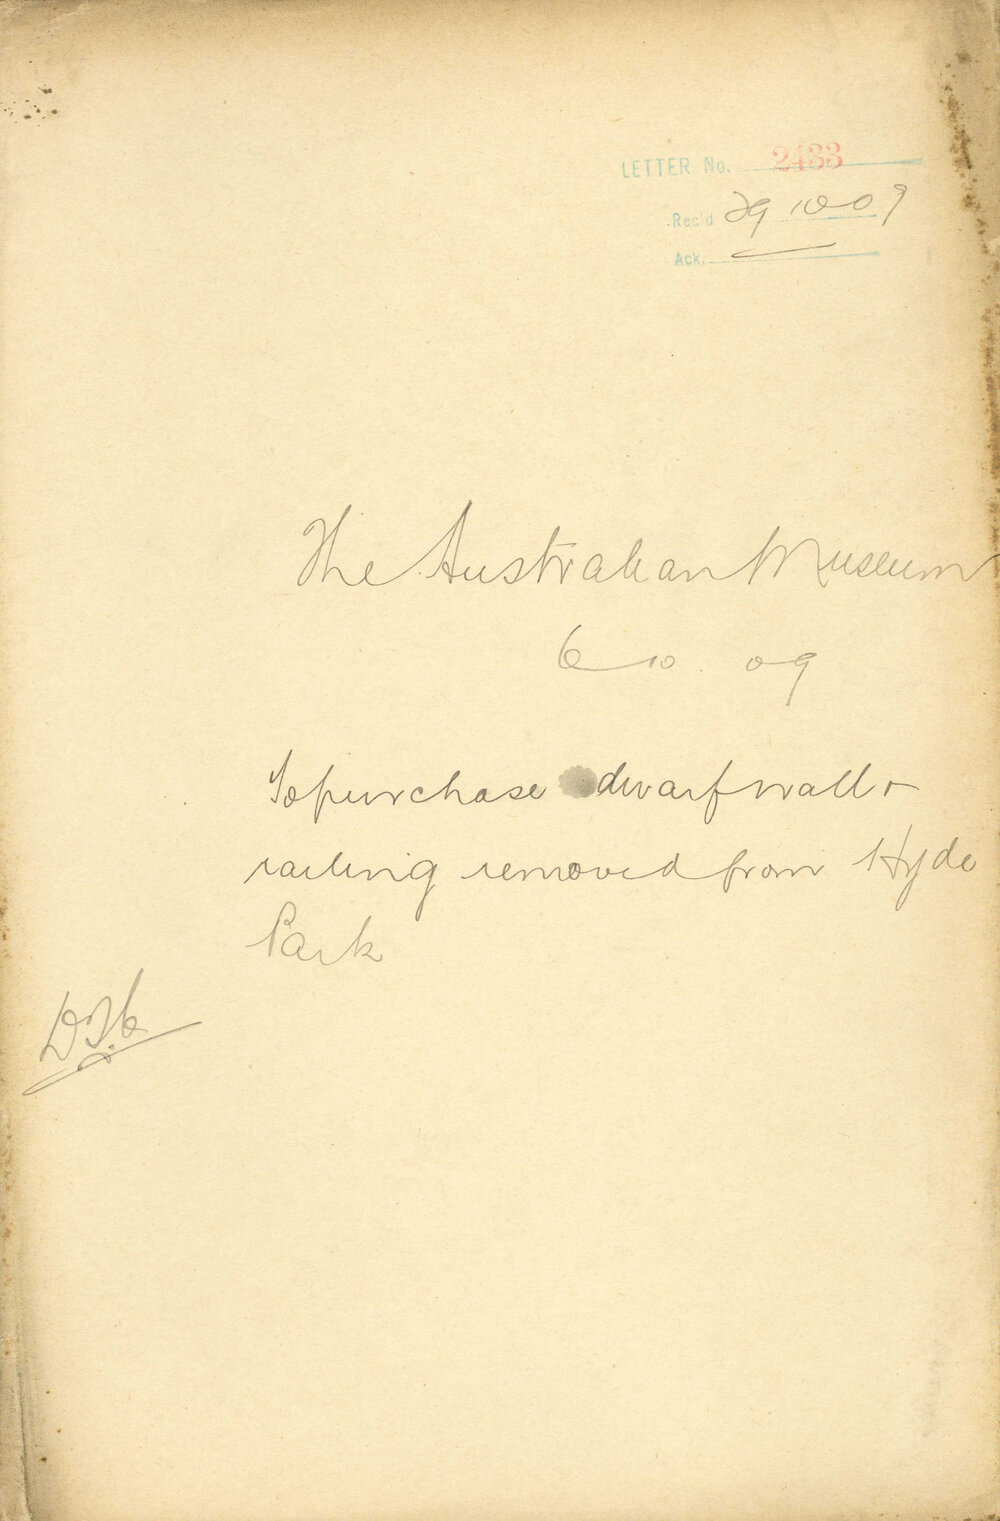 LETTER No. 2433
Rec'd 29 10 09
Ack.
The Australian Museum
6 10. 09
To purchase dwarf wall +
railing removed from Hyde
Park